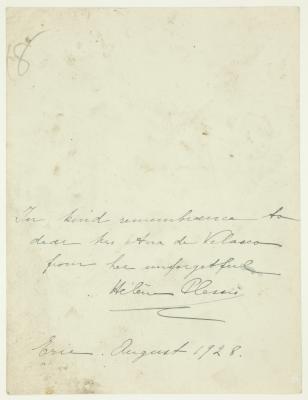 68
In kind remembrance to
dear Mrs Ana de Velasco
from her unforgetful
Hélène Plessis
Erie. August 1928.